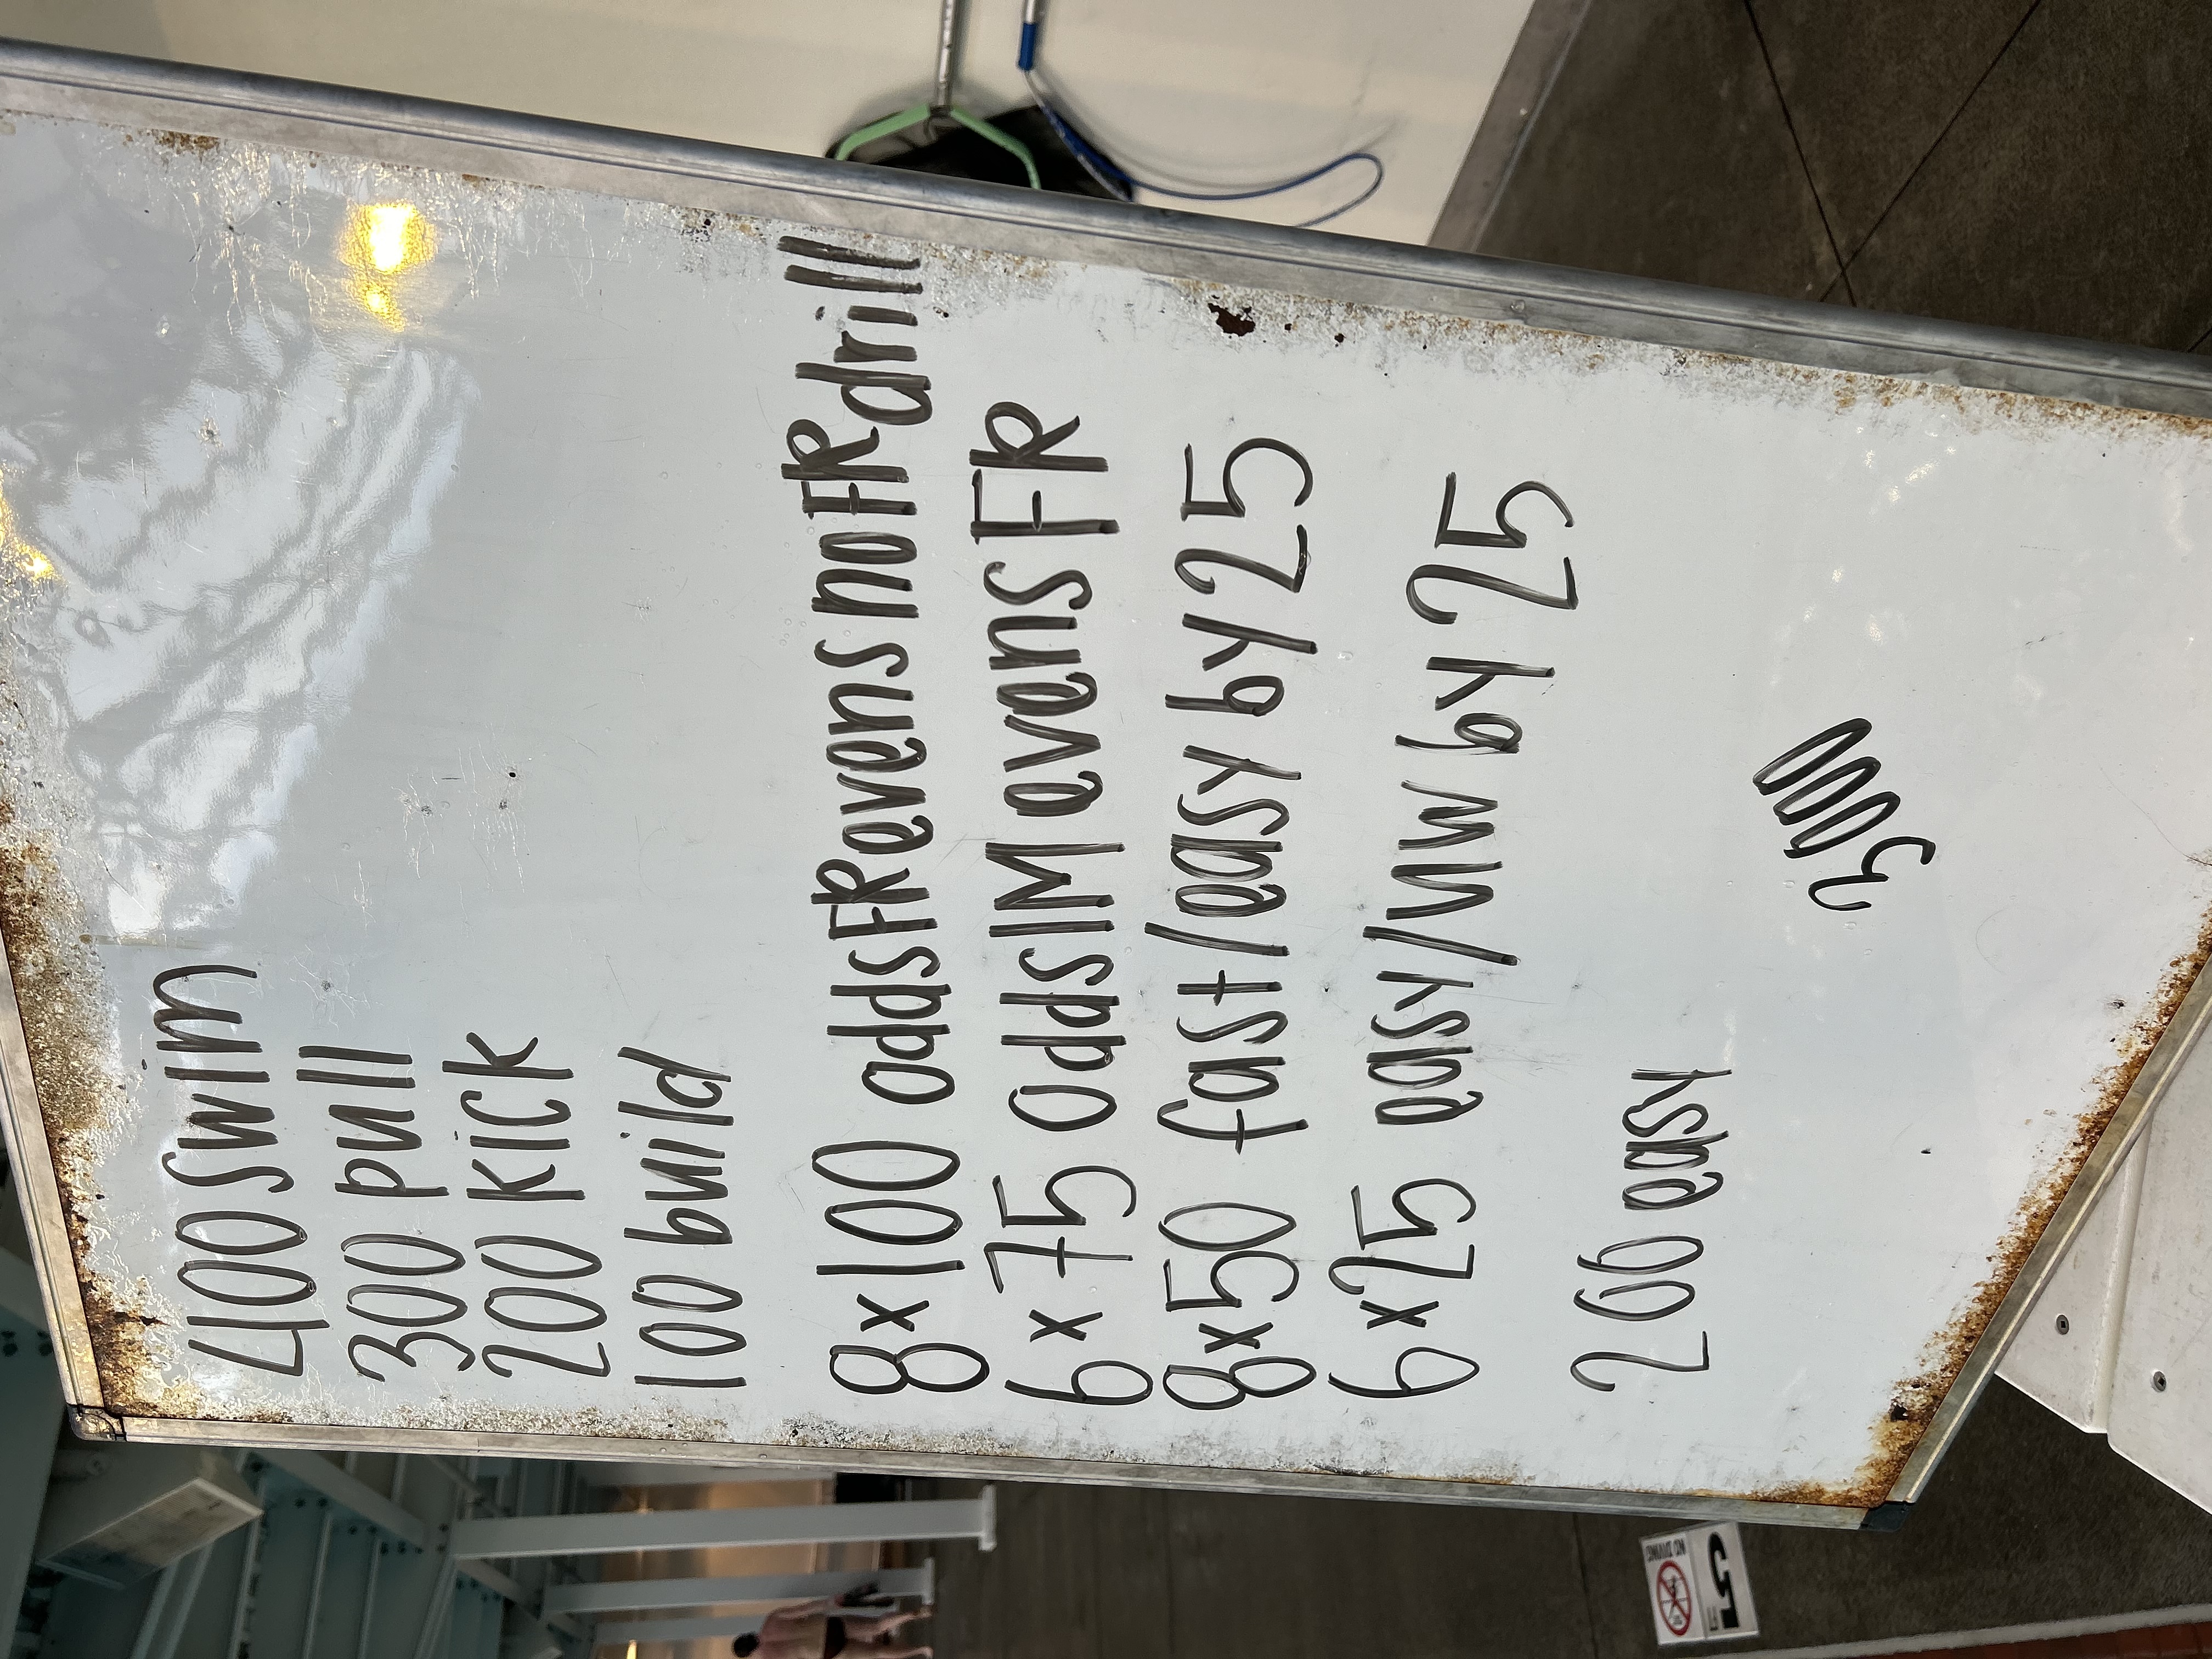 400 swim
300 pull
200 kick
100 build
8x100 odds FR evens no FR drill
6x75 odds IM evens FR
8x50 fast/easy by 25
6x25 easy/MM by 25
200 easy
3000
5
NO DIVING